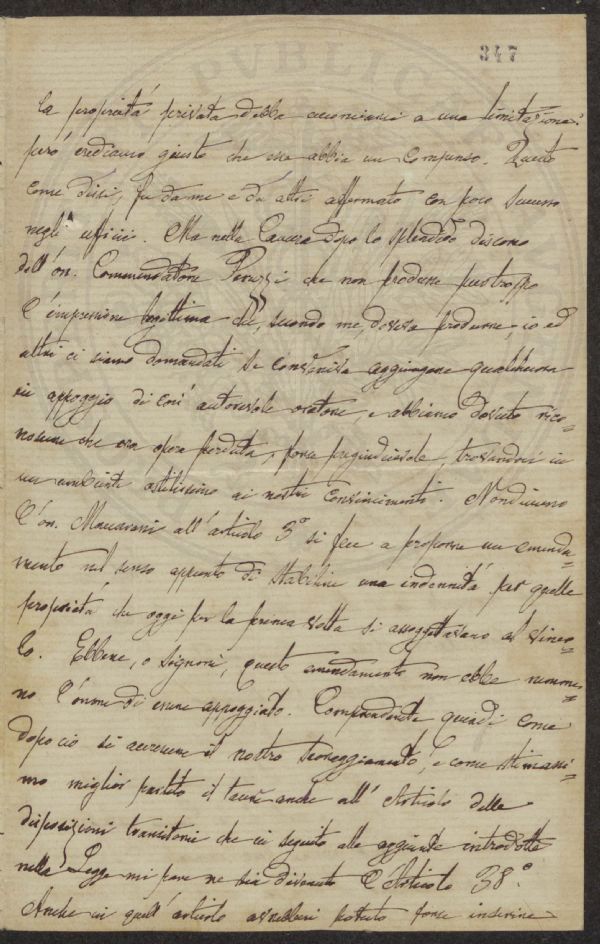 347
la proprietá privata debba acconciarsi a una limitazione:
peró crediamo giusto che essa abbia un compenso. Questo
come dissi, fu da me e da altri affermato con poco successo
negli uffici. Ma nella Camera dopo lo splendido discorso
dell'on. Commendatore Peruzzi che non produsse purtroppo
l'impressione legittima che, secondo me, doveva produrre, io ed
altri ci siamo domandati se conveniva aggiungere qualchecosa
in appoggio di cosí autorevole oratore, e abbiamo dovuto rico-
noscere che era opera perduta, forse pregiudicevole, trovandoci in
un ambiente ostilissimo ai nostri convincimenti. Nondimeno
l'on. all'articolo 3º si fece a proporre un emenda-
mento nel senso appunto di stabilire una indennitá per quelle
proprietá che oggi per la prima volta si assoggettavano al vinco-
lo. Ebbene, o Signori, questo emendamento non ebbe nemme-
no l'onore di essere appoggiato. Comprenderete quindi come
dopo ció si accrescesse il nostro scoraggiamento, e come stimassi-
mo miglior partito il tacere anche all'Articolo delle
disposizioni transitorie che in seguito alle aggiunte introdotte
nella Legge mi pare ne sia divenuto l'Articolo 38º.
Anche in quell'articolo avrebbesi potuto forse inserire